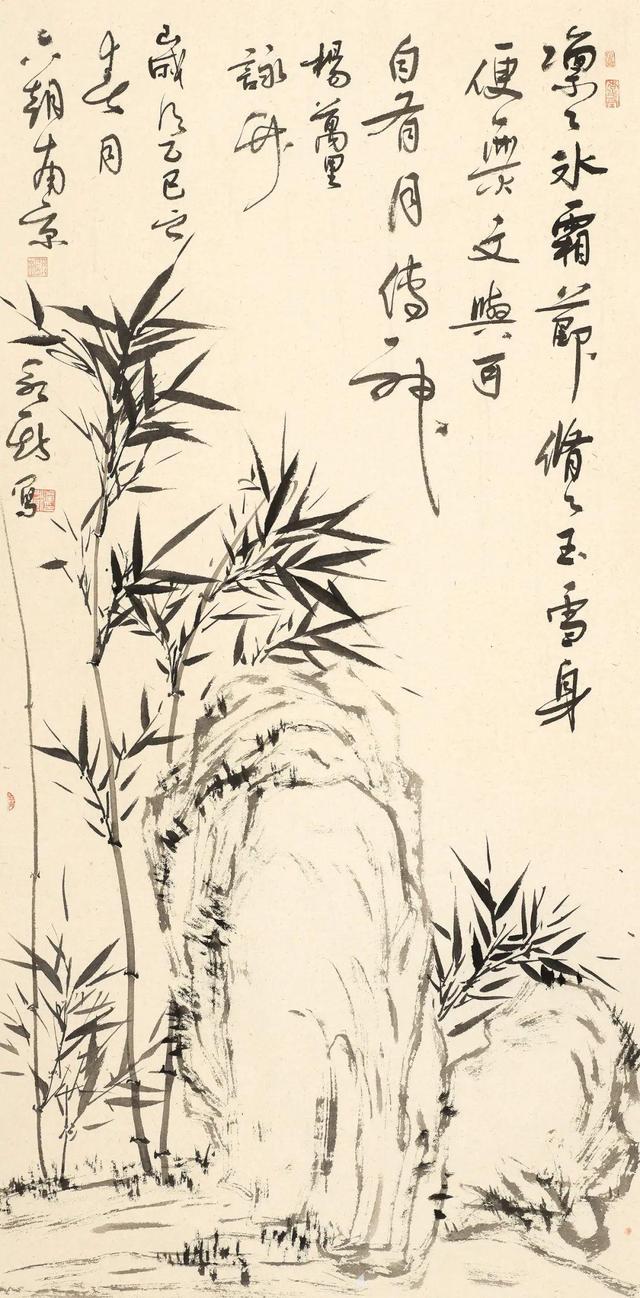 凛々冰霜節脩々玉雪身
便無文與可
自有月傳神
楊萬里
詠竹
歲次乙巳之
春月
六朝南京
寫